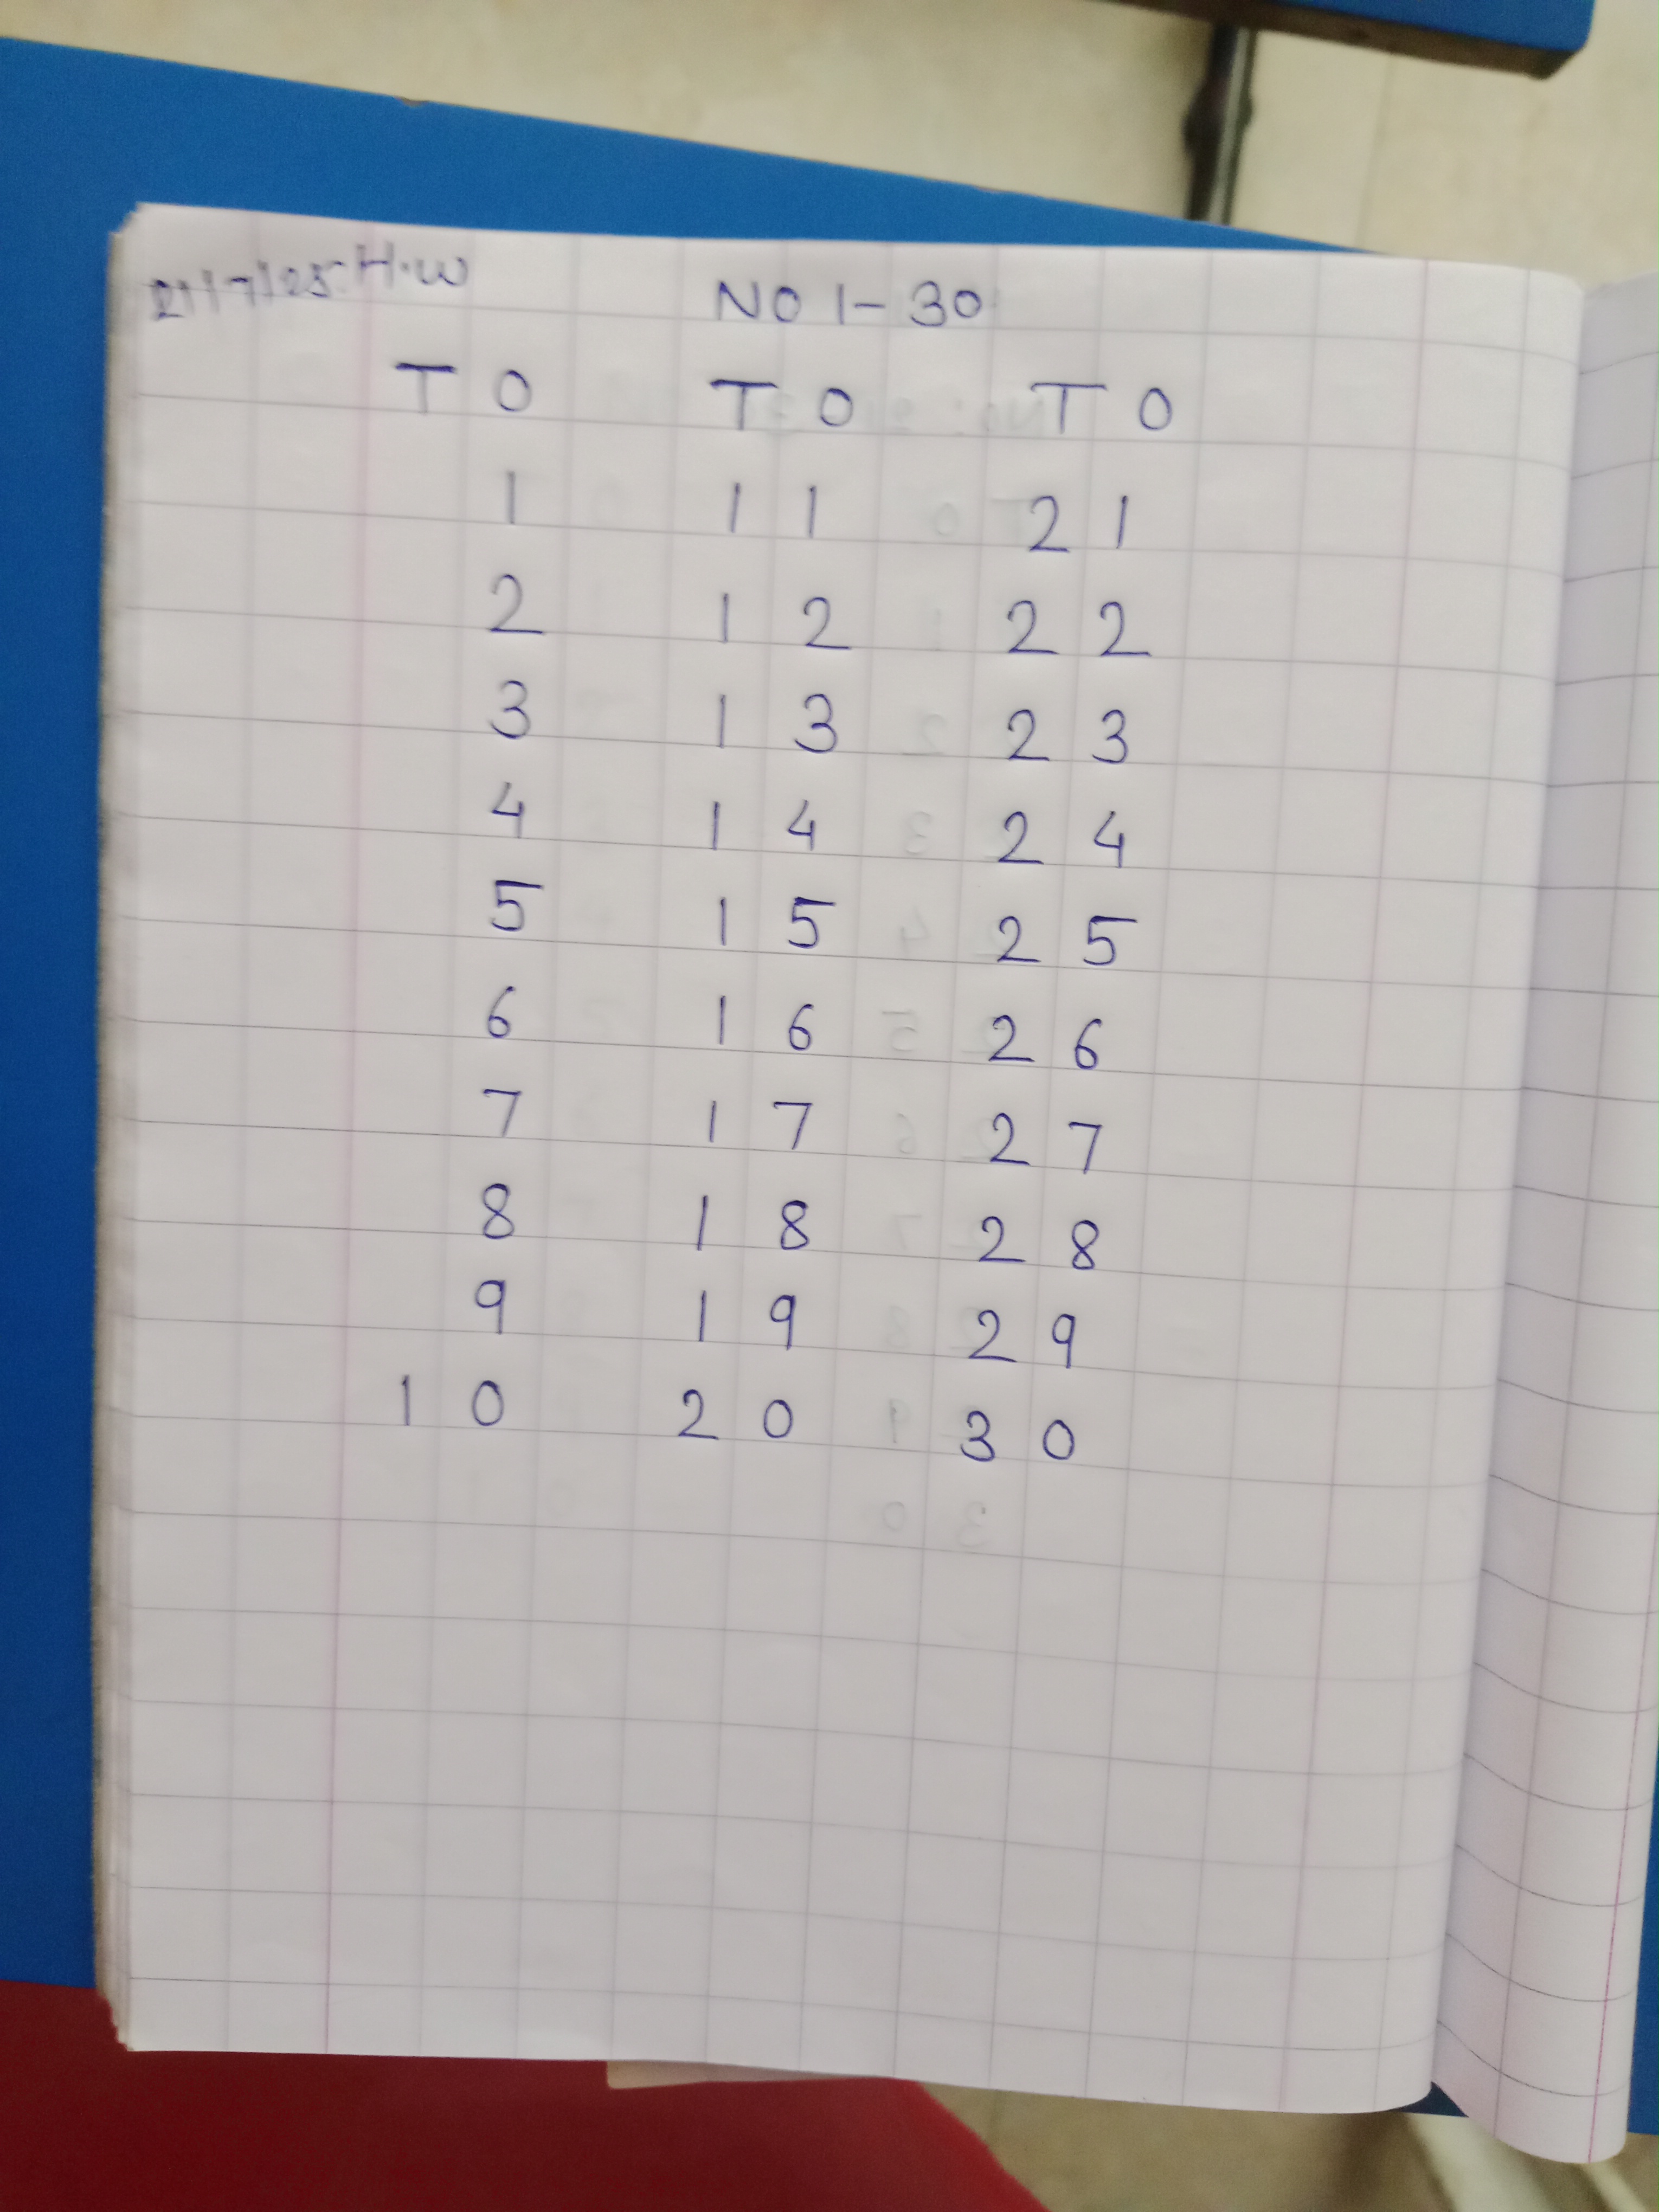 21/7/25 H.W NO 1-30
T O T O T O
1 1 1 2 1
2 1 2 2 2
3 1 3 2 3
4 1 4 2 4
5 1 5 2 5
6 1 6 2 6
7 1 7 2 7
8 1 8 2 8
9 1 9 2 9
1 0 2 0 3 0